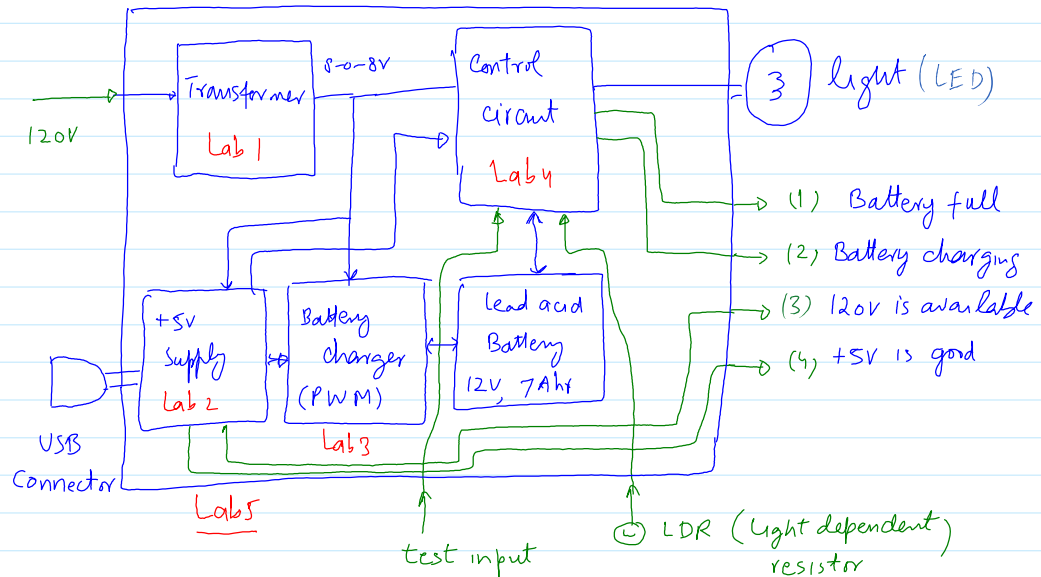 Transformer
Lab 1
120V
8-0-8V
Control
circuit
Lab 4
3
light (LED)
(1) Battery full
(2) Battery charging
(3) 120V is available
(4) +5V is good
+5V
Supply
Lab 2
Battery
charger
(PWM)
Lab 3
Lead acid
Battery
12V, 7Ahr
USB
Connector
Lab 5
test input
LDR (light dependent)
resistor